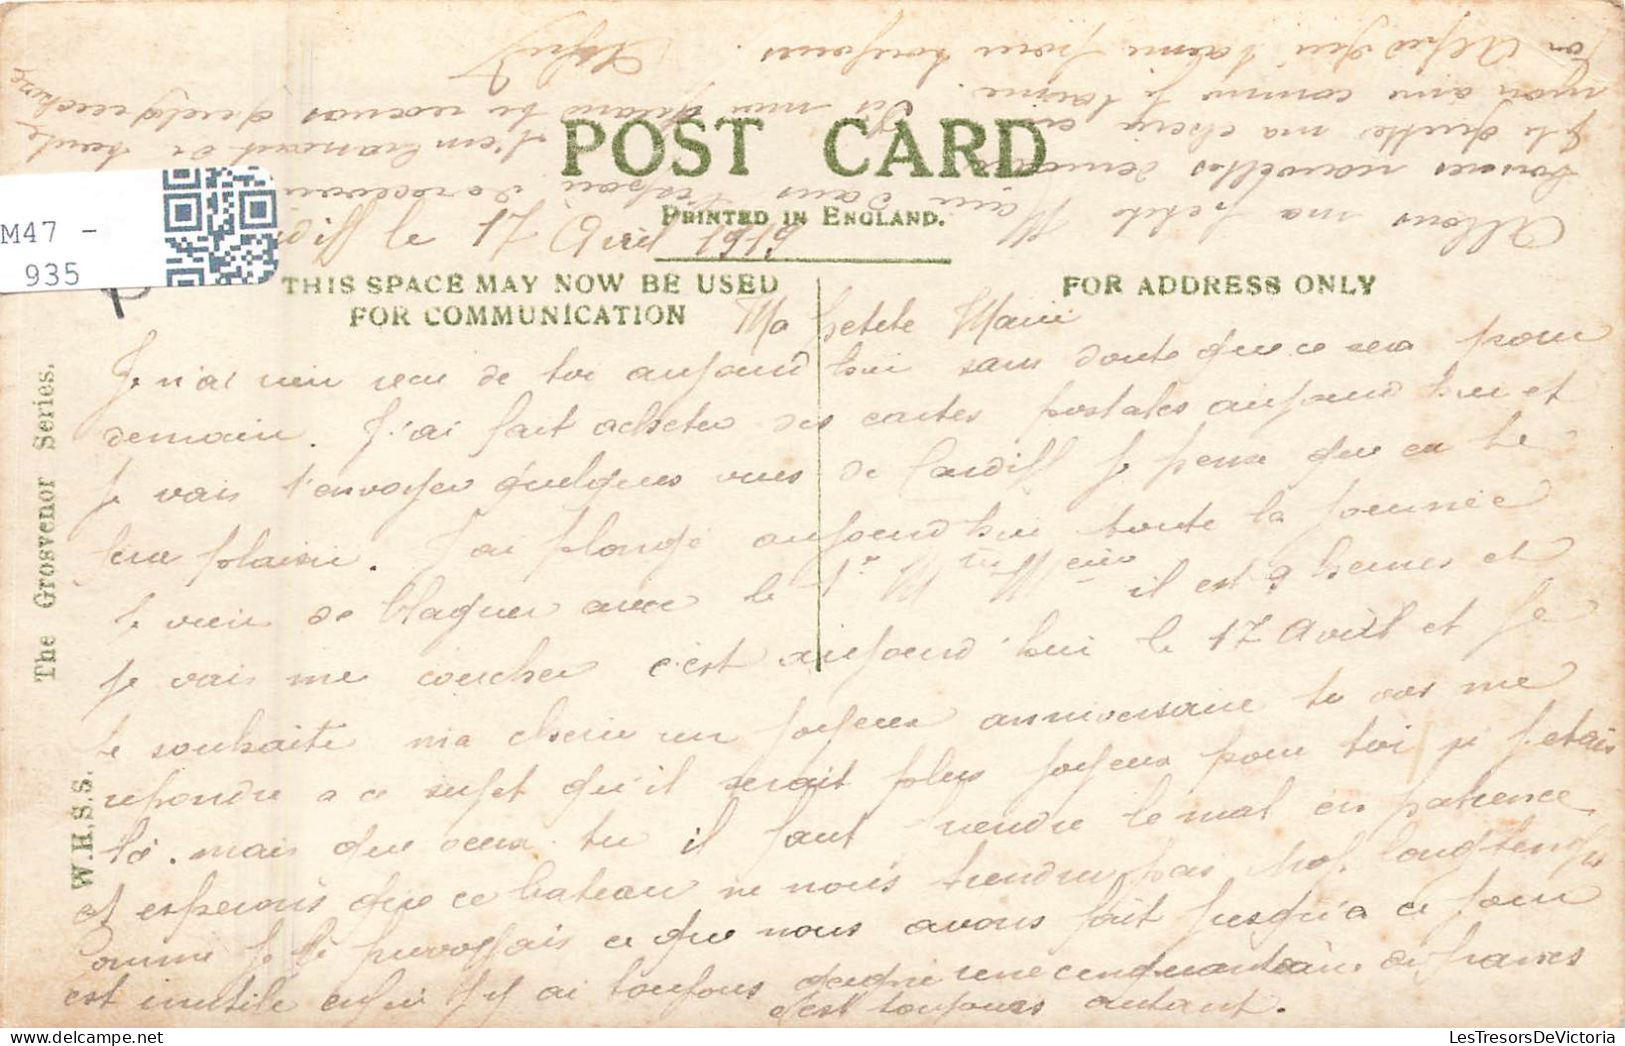 M47 -
935
POST CARD
PRINTED IN ENGLAND.
diff le 17 Avril 1919
THIS SPACE MAY NOW BE USED
FOR COMMUNICATION
FOR ADDRESS ONLY
The Grosvenor Series.
W.H.S.S.
Ma petite Marie
Je n'ai rien recu de toi aujourd hui sans doute que ce sera pour
demain. J'ai fait acheter des cartes postales aujourd hui et
Je vais t'envoyer quelques vues de Cardiff Je pense que ca te
fera plaisir. J'ai plongé aujourd hui toute la journée
Je viens de blaguer avec le 1er il est 9 heures et
Je vais me coucher c'est aujourd'hui le 17 Avril et Je
te souhaite ma cherie un joyeux anniversaire tu vas me
repondre a ce sujet qu'il serait plus joyeux pour toi si J'etais
là. mais que veux tu il faut prendre le mal en patience
et esperons que ce bateau ne nous tiendra pas longtemps
Comme Je le prevoyais ce que nous avons fait jusqu'a ce jour
est inutile enfin J'y ai toujours gagné une cinquantaine de francs
c'est toujours autant.
Allons ma petite Marie dans l'espoir de recevoir
bonnes nouvelles demain
Je te quitte ma cherie en
mon ame comme Je t'aime.
Ton Alfred qui t'aime pour toujours.
Alfred